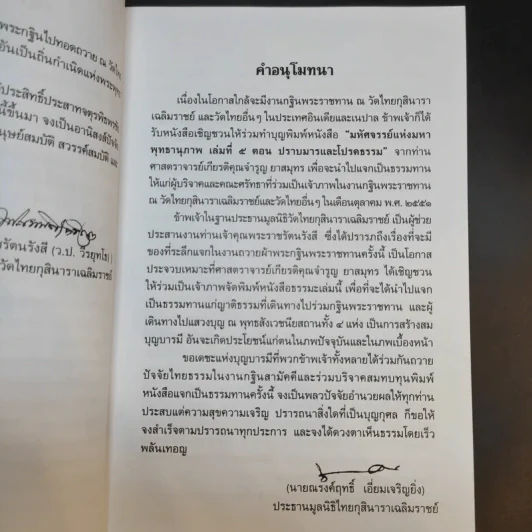 พระกฐินไปทอดถวาย ณ วัดไทย
อันเป็นถิ่นกำเนิดแห่งพระพุทธ
ประสิทธิ์ประสาทจตุรพิธพร
นี้ขึ้นมา จงเป็นอานิสงส์
มนุษย์สมบัติ สวรรค์สมบัติ และ
รัตนรังสี (ว.ป. วีรยุทโธ)
วัดไทยกุสินาราเฉลิมราชย์
คำอนุโมทนา
เนื่องในโอกาสใกล้จะมีงานกฐินพระราชทาน ณ วัดไทยกุสินารา
เฉลิมราชย์ และวัดไทยอื่นๆ ในประเทศอินเดียและเนปาล ข้าพเจ้าก็ได้
รับหนังสือเชิญชวนให้ร่วมทำบุญพิมพ์หนังสือ "มหัศจรรย์แห่งมหา
พุทธานุภาพ เล่มที่ ๕ ตอน ปราบมารและโปรดธรรม" จากท่าน
ศาสตราจารย์เกียรติคุณจำรูญ ยาสมุทร เพื่อจะนำไปแจกเป็นธรรมทาน
ให้แก่ผู้บริจาคและคณะศรัทธาที่ร่วมเป็นเจ้าภาพในงานกฐินพระราชทาน
ณ วัดไทยกุสินาราเฉลิมราชย์และวัดไทยอื่นๆ ในเดือนตุลาคม พ.ศ. ๒๕๕๑
ข้าพเจ้าในฐานะประธานมูลนิธิวัดไทยกุสินาราเฉลิมราชย์ เป็นผู้ช่วย
ประสานงานท่านเจ้าคุณพระราชรัตนรังสี ซึ่งได้ปรารภถึงเรื่องที่จะมี
ของที่ระลึกแจกในงานถวายผ้าพระกฐินพระราชทานครั้งนี้ เป็นโอกาส
ประจวบเหมาะที่ศาสตราจารย์เกียรติคุณจำรูญ ยาสมุทร ได้เชิญชวน
ให้ร่วมเป็นเจ้าภาพจัดพิมพ์หนังสือธรรมะเล่มนี้ เพื่อที่จะได้นำไปแจก
เป็นธรรมทานแก่ญาติธรรมที่เดินทางไปร่วมกฐินพระราชทาน และผู้
เดินทางไปแสวงบุญ ณ พุทธสังเวชนียสถานทั้ง ๔ แห่ง เป็นการสร้างสม
บุญบารมี อันจะเกิดประโยชน์แก่ตนในภพปัจจุบันและในภพเบื้องหน้า
ขอเดชะแห่งบุญบารมีที่พวกข้าพเจ้าทั้งหลายได้ร่วมกันถวาย
ปัจจัยไทยธรรมในงานกฐินสามัคคีและร่วมบริจาคสมทบทุนพิมพ์
หนังสือแจกเป็นธรรมทานครั้งนี้ จงเป็นพลวปัจจัยอำนวยผลให้ทุกท่าน
ประสบแต่ความสุขความเจริญ ปรารถนาสิ่งใดที่เป็นบุญกุศล ก็ขอให้
จงสำเร็จตามปรารถนาทุกประการ และจงได้ดวงตาเห็นธรรมโดยเร็ว
พลันเทอญ
(นายณรงค์ฤทธิ์ เอี่ยมเจริญยิ่ง)
ประธานมูลนิธิไทยกุสินาราเฉลิมราชย์